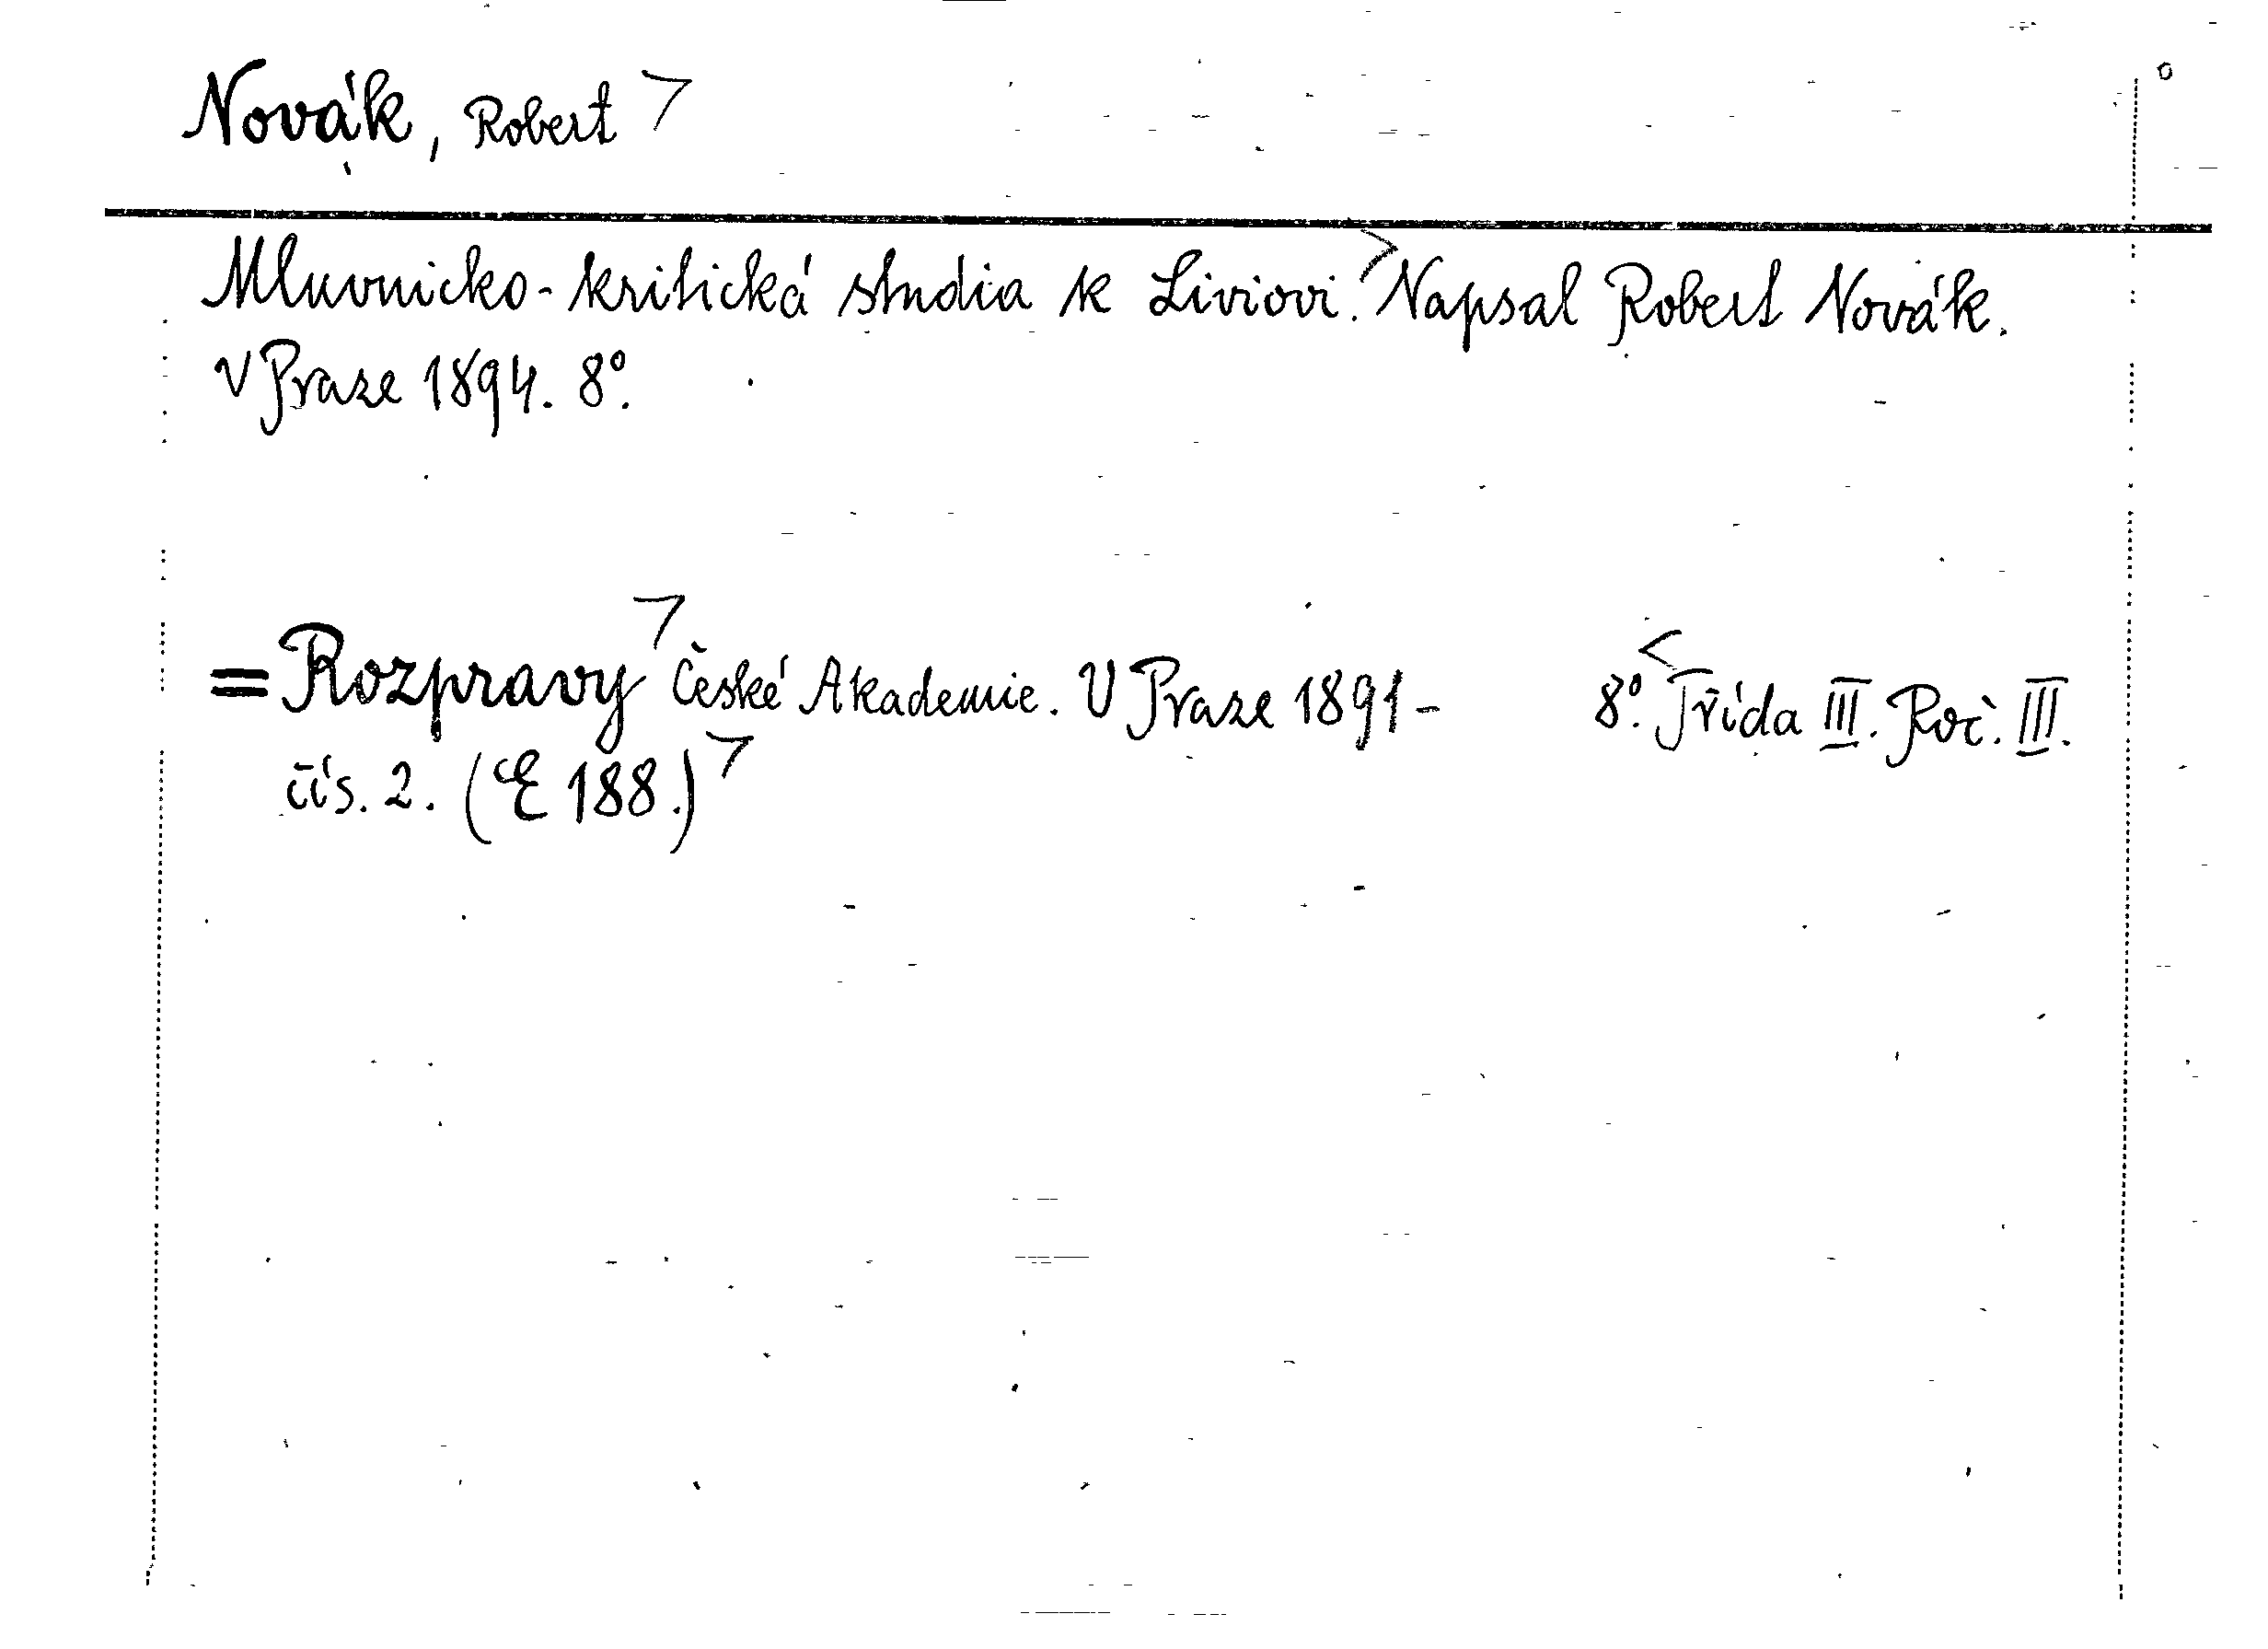 Novák, Robert
Mluvnicko-kritická studia k Liviovi. Napsal Robert Novák.
V Praze 1894. 8º.
= Rozpravy České Akademie. V Praze 1891- 8º. Třída III. Roč. III.
čís. 2. (E 188.)